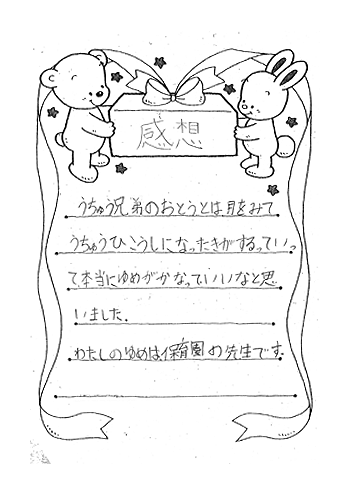 感想
うちゅう兄弟のおとうとは月をみて
うちゅうひこうしになったきがするっていっ
て本当にゆめがかなっていいなと思
いました.
わたしのゆめは保育園の先生です.